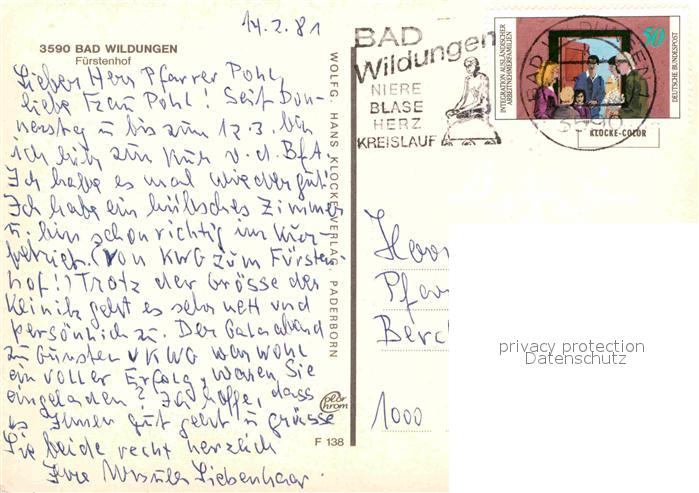 14.2.81
3590 BAD WILDUNGEN
Fürstenhof
Lieber Herr Pfarrer Pohl,
liebe Frau Pohl! Seit Don-
nerstag u bis zum 12.3. bin
ich hier zur Kur v. d. BfA.
Ich habe es mal wieder gut!
Ich habe ein hübsches Zimmer
u. bin schon richtig im Kur-
betrieb. (Von KWG zum Fürsten-
hof!) Trotz der Grösse der
Klinik geht es sehr nett und
persönlich zu. Der Galaabend
zu Gunsten KWG war wohl
ein voller Erfolg, waren Sie
eingeladen? Ich hoffe, dass
es Ihnen gut geht u grüsse
Sie beide recht herzlich
Ihre Ursula Liebenhaar.
WOLFG. HANS KLOCKE VERLAG PADERBORN
F 138
BAD
Wildungen
NIERE
BLASE
HERZ
KREISLAUF
BAD WILDUNGEN
3590
INTEGRATION AUSLÄNDISCHER
ARBEITNEHMERFAMILIEN
50
DEUTSCHE BUNDESPOST
KLOCKE-COLOR
Pfar
1000
privacy protection
Datenschutz